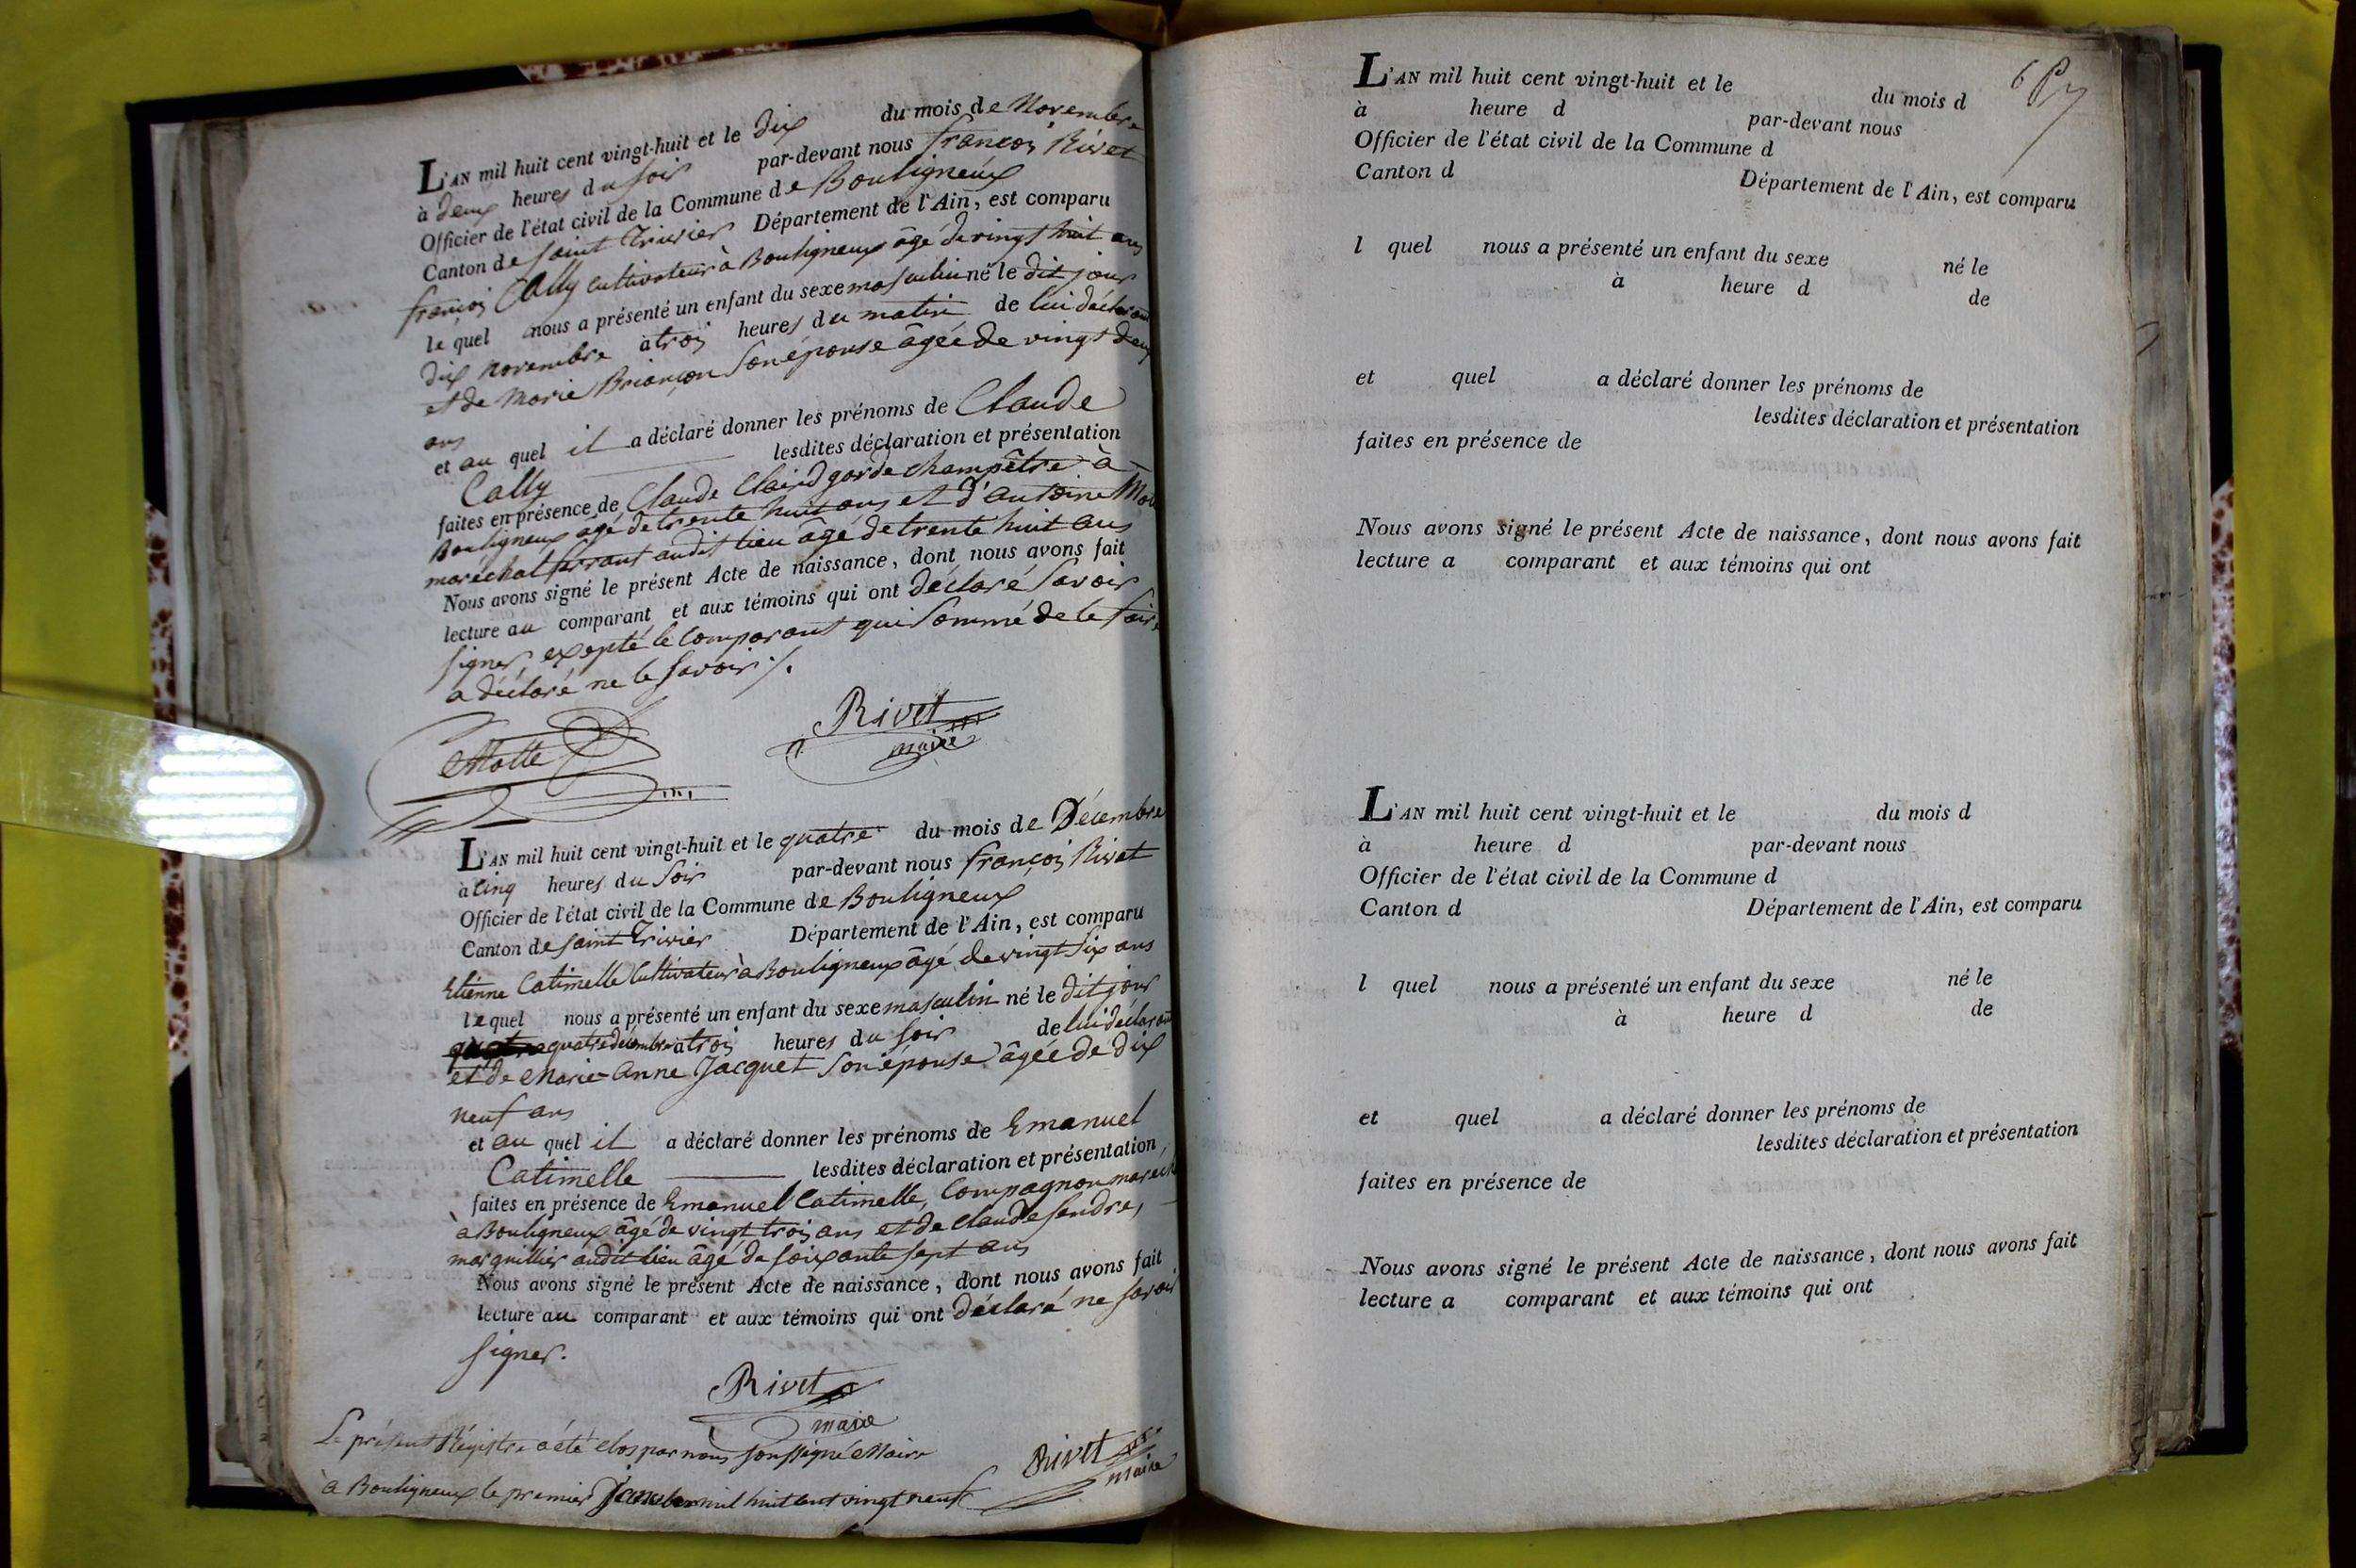 L'AN mil huit cent vingt-huit et le dix du mois de Novembre
à deux heures du soir par-devant nous françois Rivet
Officier de l'état civil de la Commune de Bouligneux
Canton de saint Trivier Département de l'Ain, est comparu
françois Cally cultivateur à Bouligneux âgé de vingt huit ans
le quel nous a présenté un enfant du sexe masculin né le dit jour
dix novembre à trois heures du matin de lui déclarant
et de Marie Briançon son épouse âgée de vingt deux
ans
et au quel il a déclaré donner les prénoms de Claude
Cally lesdites déclaration et présentation
faites en présence de Claude Claird garde champêtre à
Bouligneux âgé de trente huit ans et d'antoine
maréchal ferrant audit lieu âgé de trente huit ans
Nous avons signé le présent Acte de naissance, dont nous avons fait
lecture au comparant et aux témoins qui ont déclaré savoir
signer, expepté le comparant qui sommé de le faire
a déclaré ne le savoir ./.
Motte Rivet
maire
L'AN mil huit cent vingt-huit et le quatre du mois de Décembre
à cinq heures du soir par-devant nous françois Rivet
Officier de l'état civil de la Commune de Bouligneux
Canton de saint Trivier Département de l'Ain, est comparu
Etienne Catimelle Cultivateur à Bouligneux âgé de vingt six ans
le quel nous a présenté un enfant du sexe masculin né le dit jour
quatre décembre à trois heures du soir de lui déclarant
et de Marie-Anne Jacquet son épouse âgée de dix
neuf ans
et au quel il a déclaré donner les prénoms de Emanuel
Catimelle lesdites déclaration et présentation
faites en présence de Emanuel Catimelle, Compagnon maréch
à Bouligneux âgé de vingt trois ans et de claude fendre,
marguillier audit lieu âgé de soixante sept ans
Nous avons signé le présent Acte de naissance, dont nous avons fait
lecture au comparant et aux témoins qui ont déclaré ne savoir
signer.
Rivet
maire
Le présent Régistre a été clos par nous soussigné Maire
à Bouligneux le premier Janvier mil huit cent vingt neuf
Rivet
maire
6
L'AN mil huit cent vingt-huit et le du mois d
à heure d par-devant nous
Officier de l'état civil de la Commune d
Canton d Département de l'Ain, est comparu
l quel nous a présenté un enfant du sexe né le
à heure d de
et quel a déclaré donner les prénoms de
lesdites déclaration et présentation
faites en présence de
Nous avons signé le présent Acte de naissance, dont nous avons fait
lecture a comparant et aux témoins qui ont
L'AN mil huit cent vingt-huit et le du mois d
à heure d par-devant nous
Officier de l'état civil de la Commune d
Canton d Département de l'Ain, est comparu
l quel nous a présenté un enfant du sexe né le
à heure d de
et quel a déclaré donner les prénoms de
lesdites déclaration et présentation
faites en présence de
Nous avons signé le présent Acte de naissance, dont nous avons fait
lecture a comparant et aux témoins qui ont